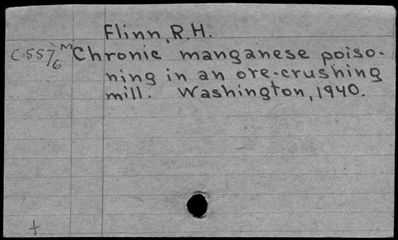 Flinn, R.H.
C557/6 M Chronic manganese poiso-
ning in an ore-crushing
mill. Washington, 1940.
+